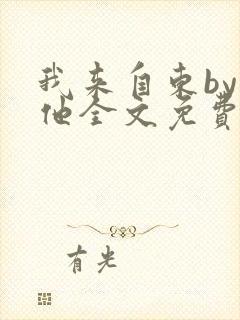 我来自东by
他全文免費
有光